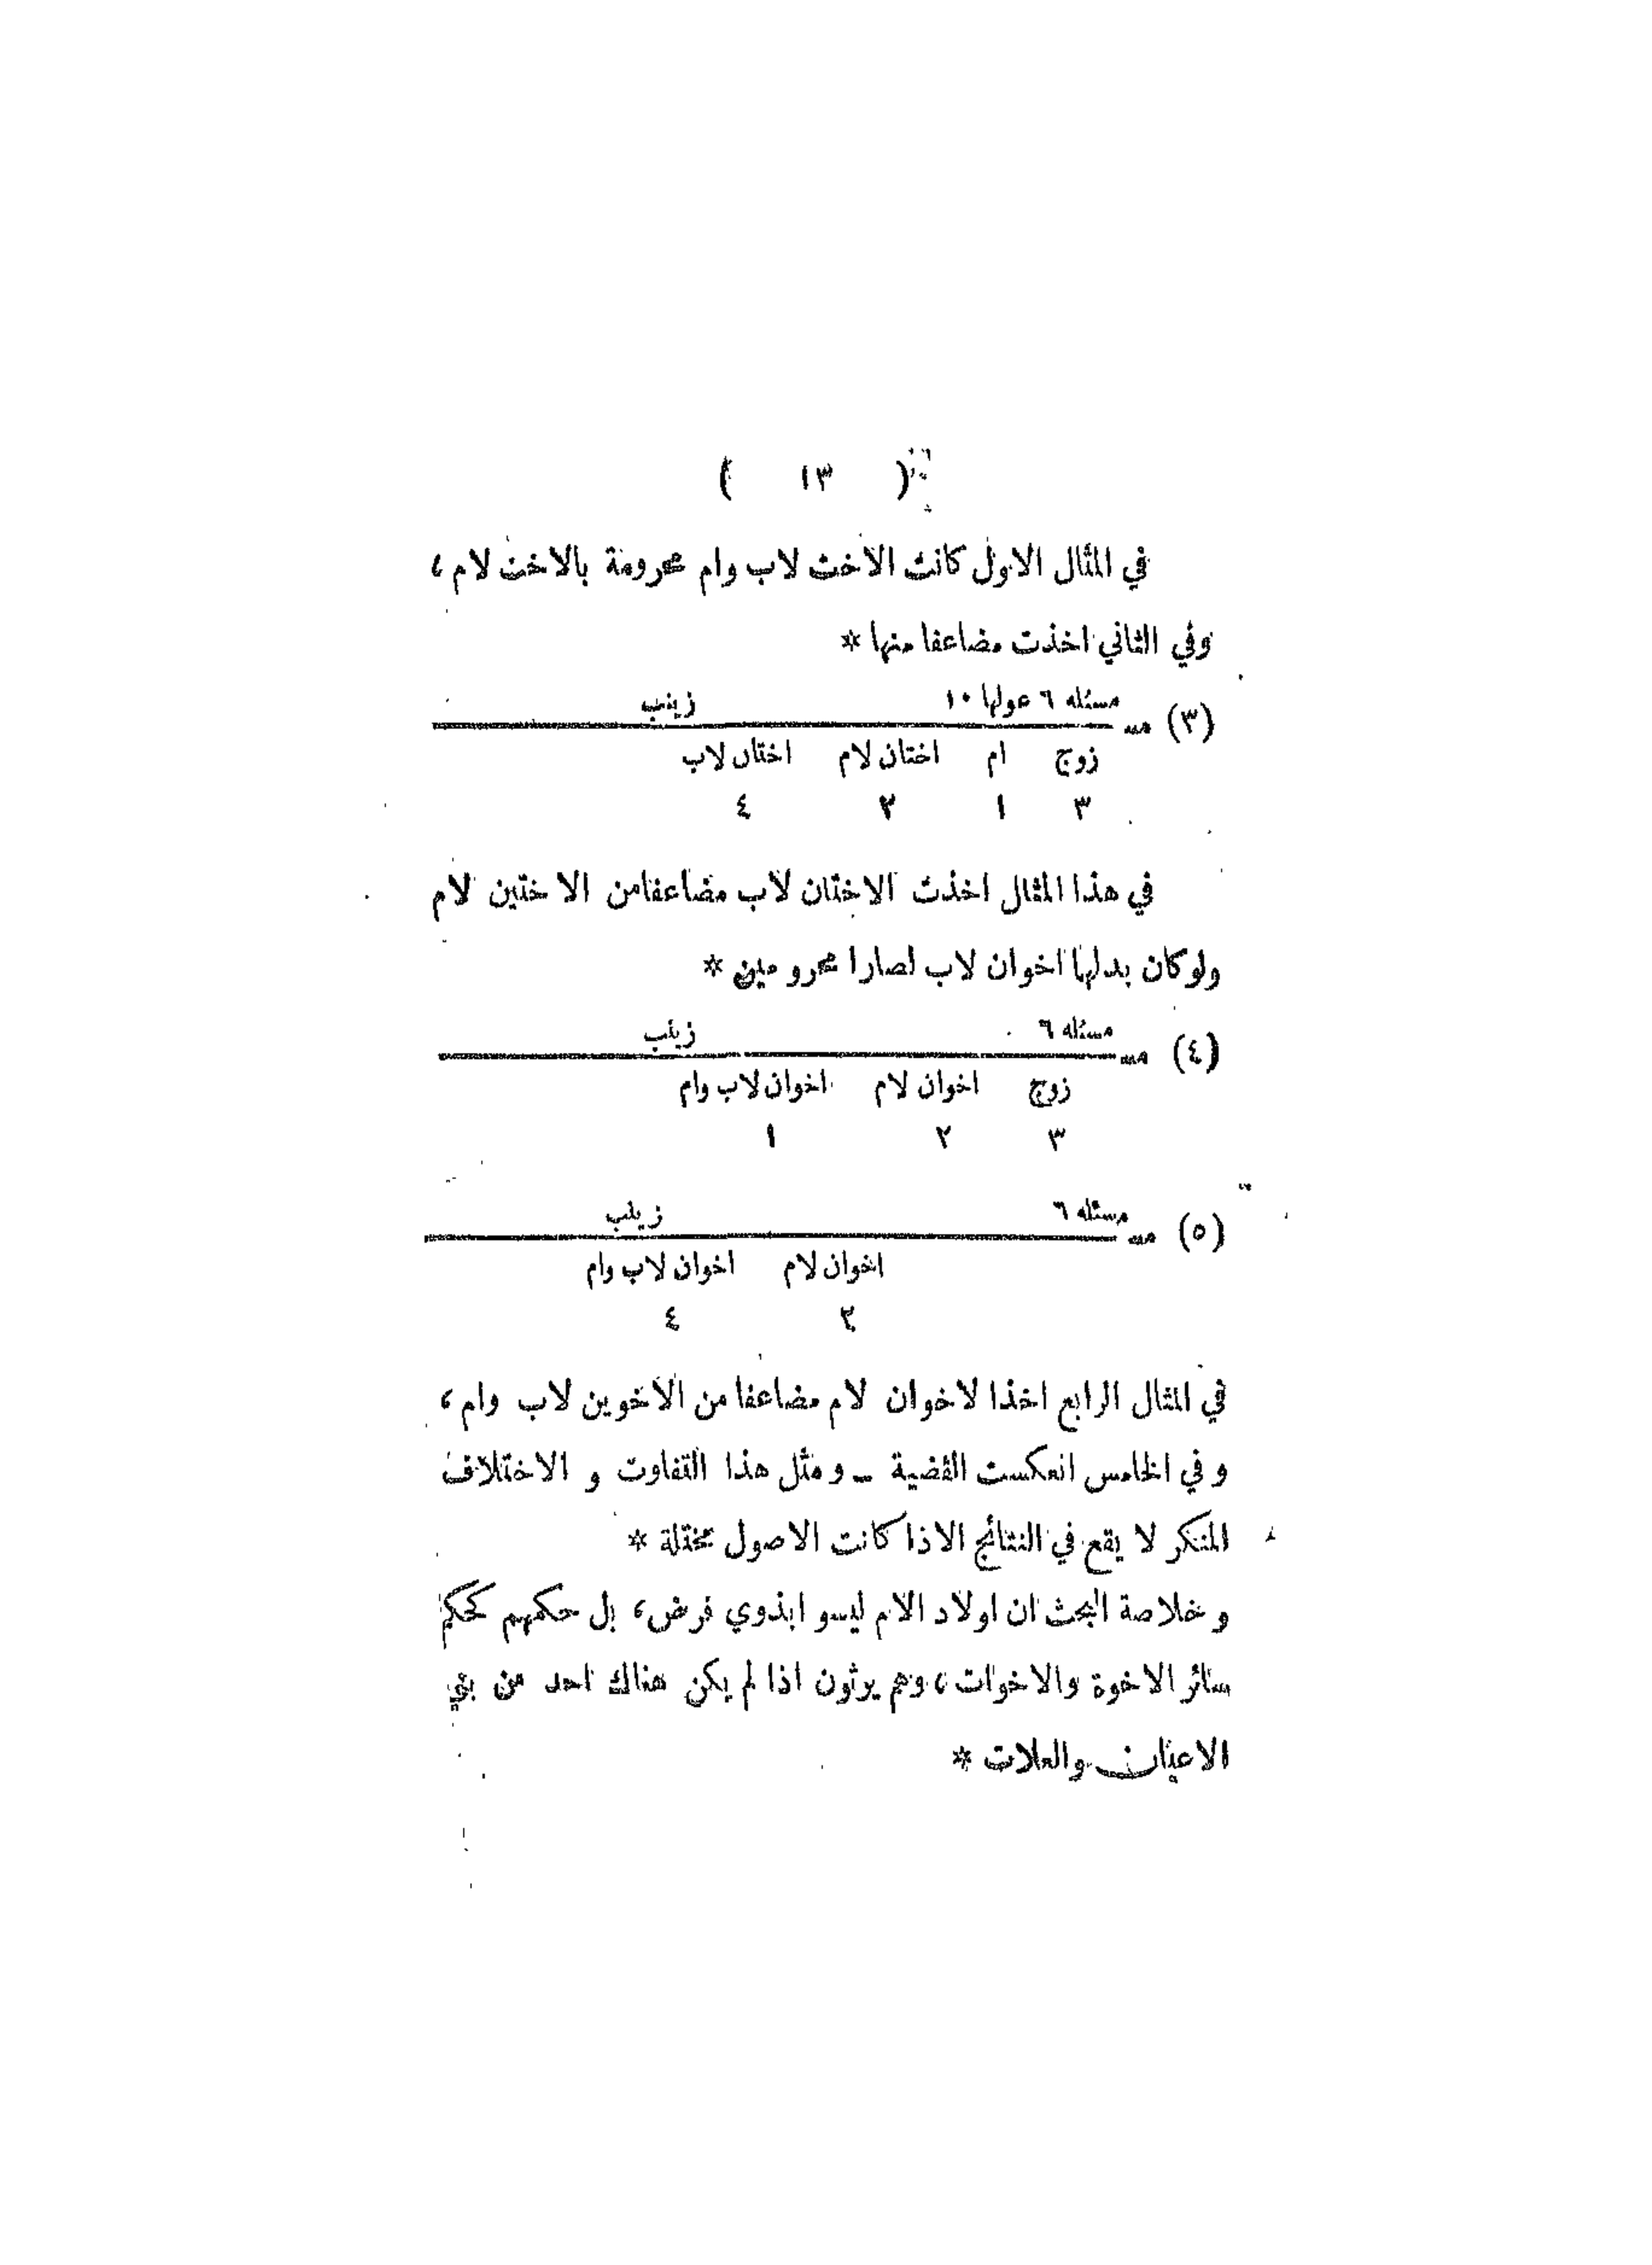 ( ١٣ )
في المثال الاول كانت الاخت لاب وام محرومة بالاخت لام ،
وفي الثاني اخذت مضاعفا منها *
مسئله ٦ عولها ١٠ زينب
(٣) مــ
زوج ام اختان لام اختان لاب
٣ ١ ٢ ٤
في هذا المثال اخذت الاختان لاب مضاعفا من الاختين لام
ولو كان بدلها اخوان لاب لصارا محرومين *
مسئله ٦ زينب
(٤) مــ
زوج اخوان لام اخوان لاب وام
٣ ٢ ١
مسئله ٦ زينب
(٥) مــ
اخوان لام اخوان لاب وام
٢ ٤
في المثال الرابع اخذا لاخوان لام مضاعفا من الاخوين لاب وام ،
و في الخامس انعكست القضية ــ و مثل هذا التفاوت و الاختلاف
المنكر لا يقع في النتائج الا اذا كانت الاصول مختلة *
و خلاصة البحث ان اولاد الام ليسو ابذوي فرض، بل حكمهم كحكم
سائر الاخوة والاخوات ، وهم يرثون اذا لم يكن هناك احد من بني
الاعيان والعلات *